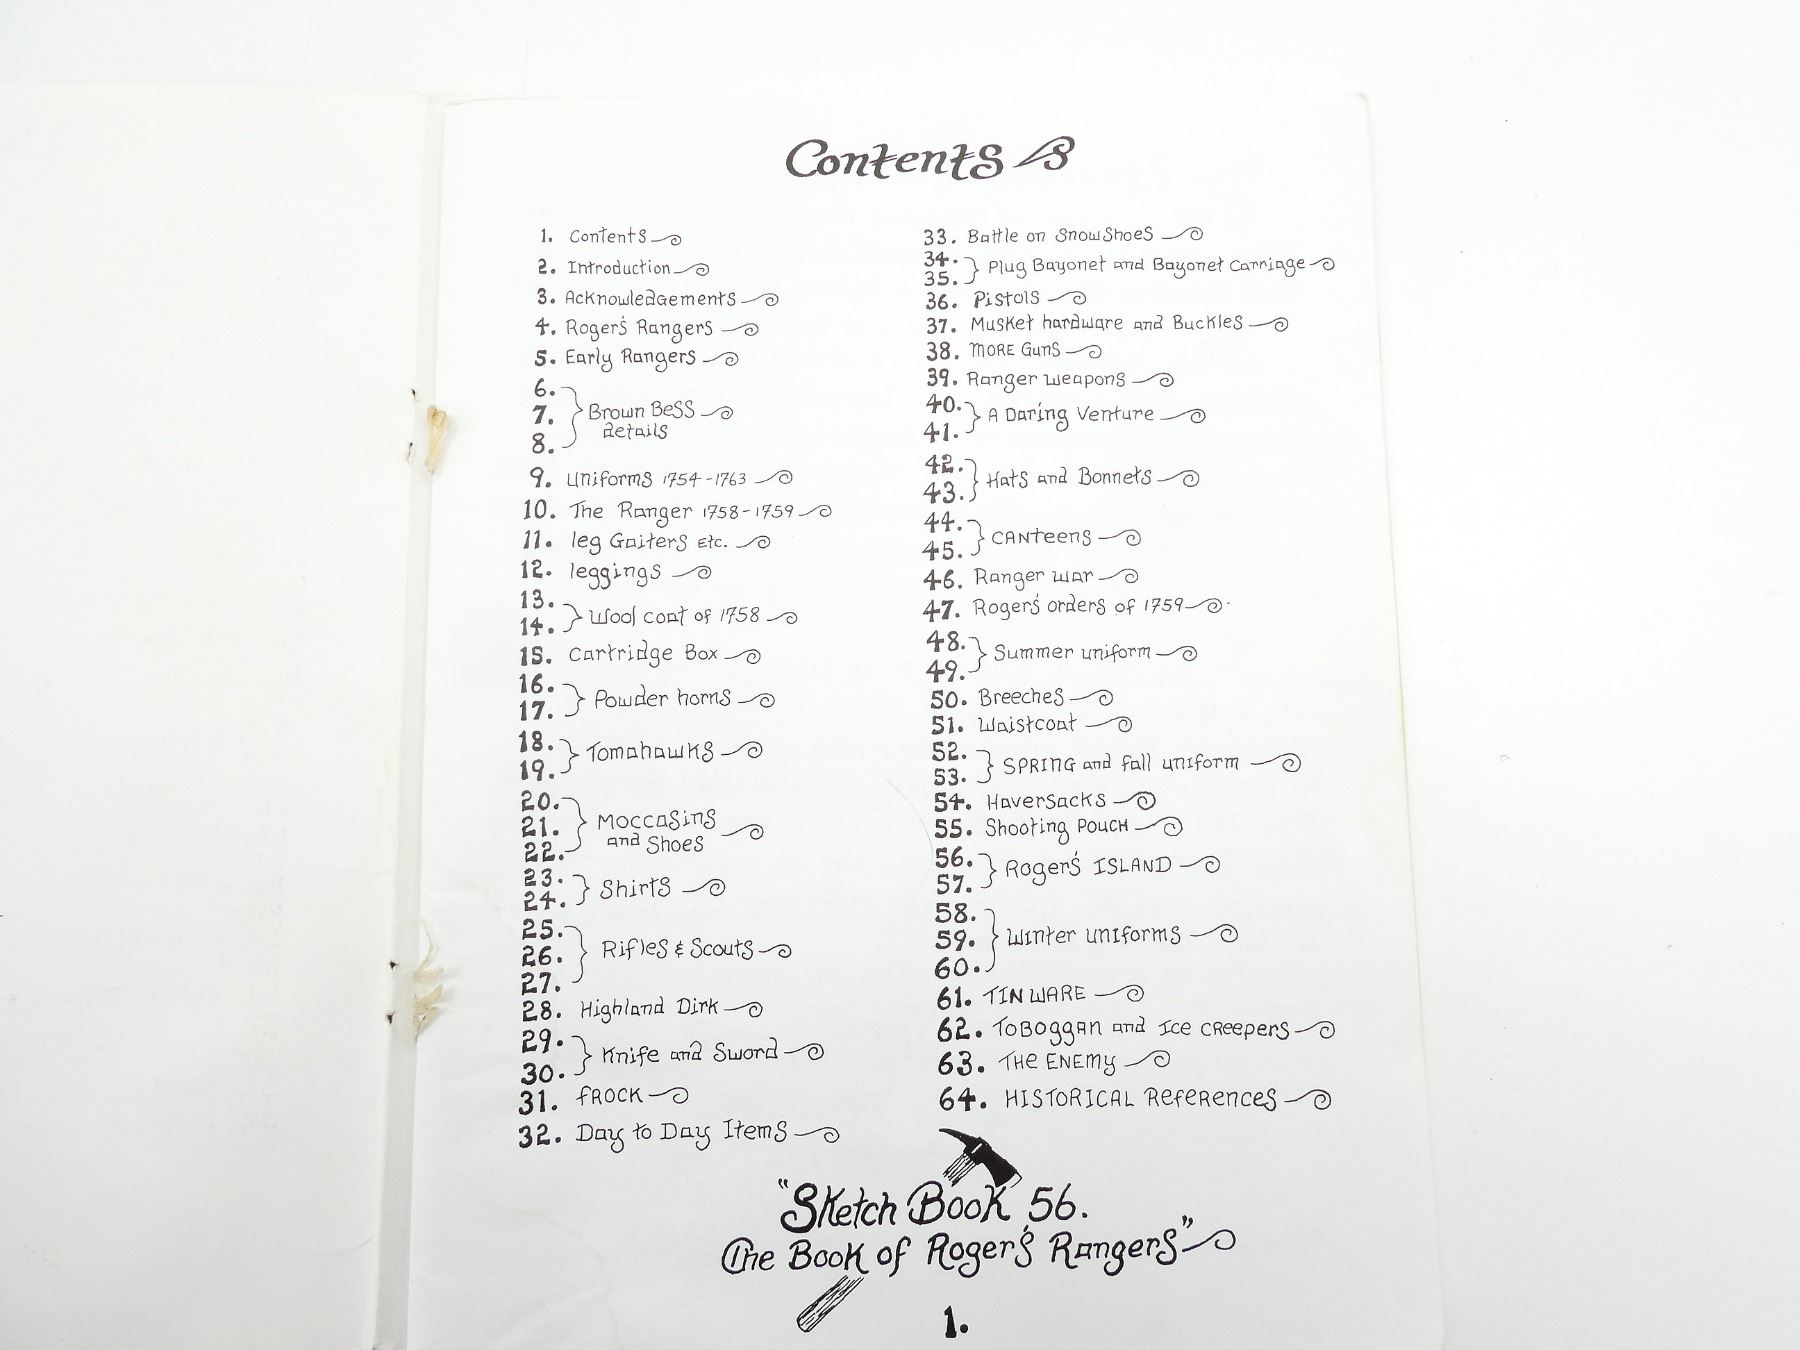 Contents
1. Contents
2. Introduction
3. Acknowledgements
4. Roger's Rangers
5. Early Rangers
6.
7. Brown Bess
details
8.
9. Uniforms 1754-1763
10. The Ranger 1758-1759
11. leg Gaiters Etc.
12. leggings
13.
14. Wool coat of 1758
15. Cartridge Box
16.
17. Powder horns
18.
19. Tomahawks
20.
21. Moccasins
and Shoes
22.
23.
24. Shirts
25.
26. Rifles & Scouts
27.
28. Highland Dirk
29.
30. Knife and Sword
31. fROCK
32. Day to Day Items
33. Battle on SnowShoes
34.
35. Plug Bayonet and Bayonet Carriage
36. Pistols
37. Musket hardware and Buckles
38. MORE Guns
39. Ranger weapons
40.
41. A Daring Venture
42.
43. Hats and Bonnets
44.
45. CANteens
46. Ranger war
47. Roger's orders of 1759
48.
49. Summer uniform
50. Breeches
51. Waistcoat
52.
53. SPRING and fall uniform
54. Haversacks
55. Shooting POUCH
56.
57. Roger's ISLAND
58.
59. Winter uniforms
60.
61. TIN WARE
62. ToBoggAn and Ice cReepers
63. THe ENEMy
64. HISTORICAL RefeRences
"Sketch Book 56.
The Book of Roger's Rangers"
1.